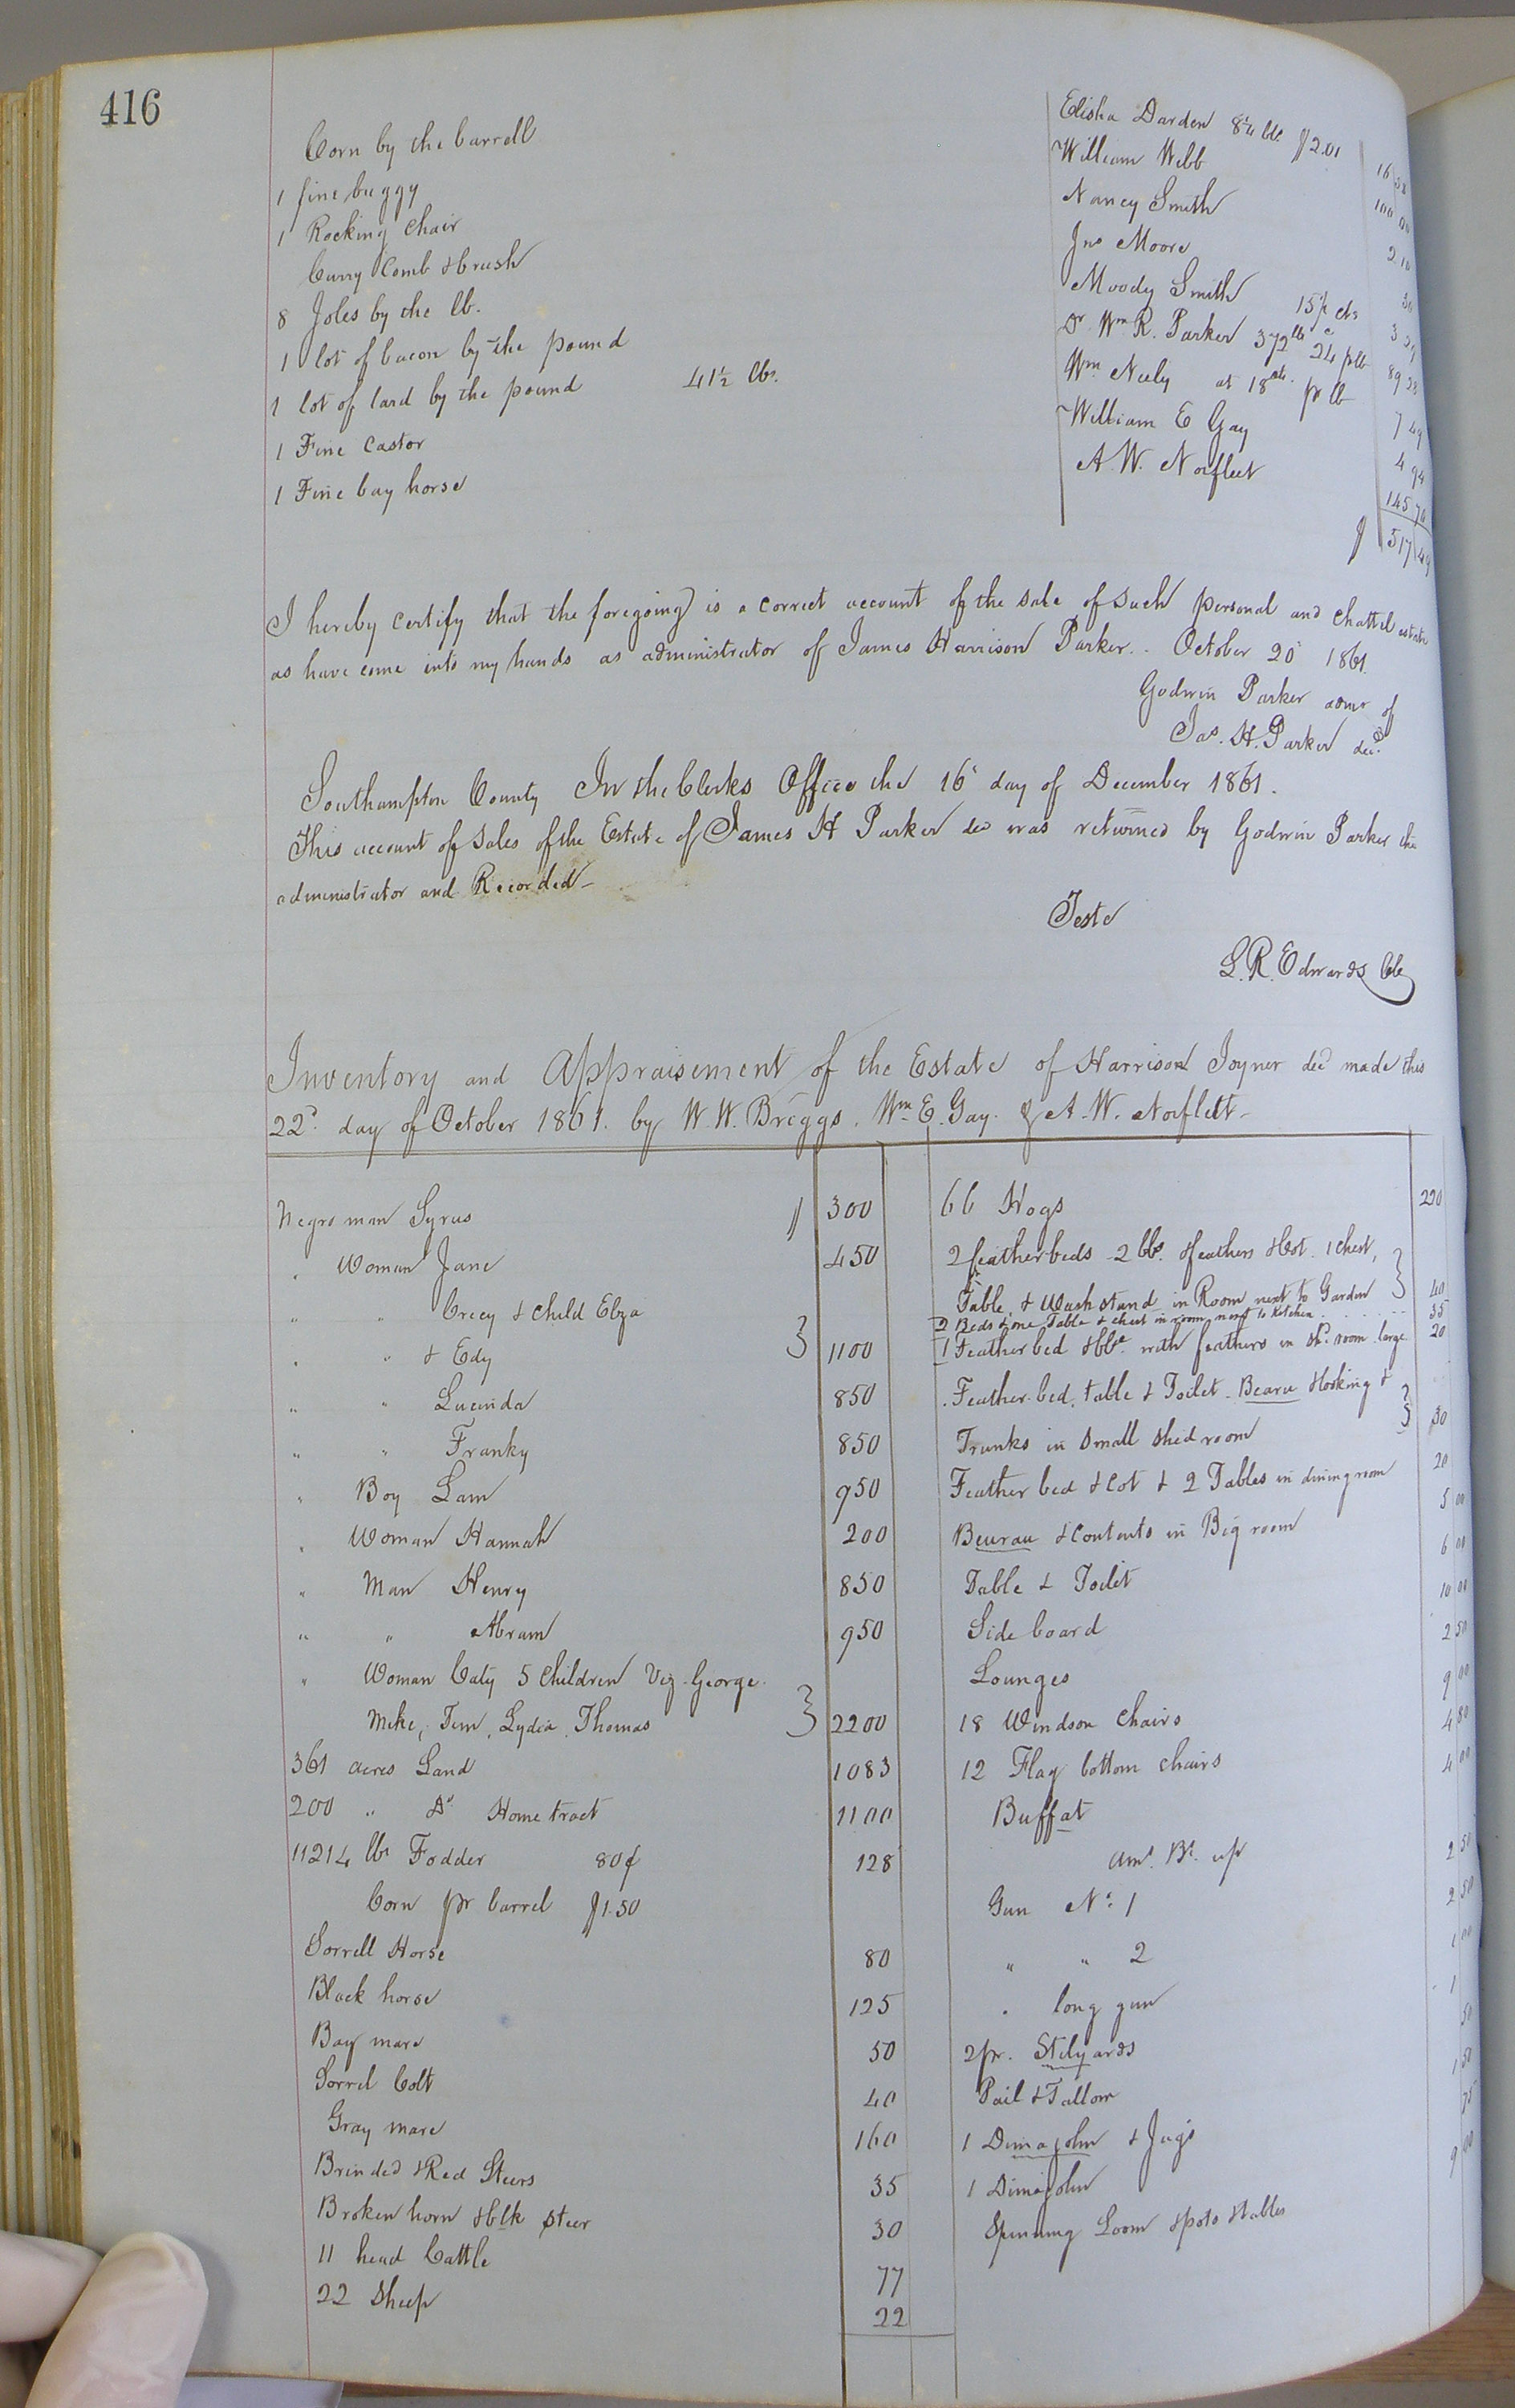 416
Corn by the barrell Elisha Darden 8¼ bbl. $2.01 16 58
1 fine buggy William Webb 100 00
1 Rocking Chair Nancy Smith 2 10
Curry Comb & brush Jno Moore 30
8 Joles by the lb. Moody Smith 15½ cts 3 29
1 lot of bacon by the pound Dr. Wm R. Parker 372 lbs 24 c p lb 89 28
1 lot of lard by the pound 41½ lbs. Wm Neely at 18 cts. pr lb 7 49
1 Fine Castor William E Gay 4 94
1 Fine bay horse A. W. Norfleet 145 70
$ 517 49
I hereby certify that the foregoing is a correct account of the sale of such personal and chattel estate
as have come into my hands as administrator of James Harrison Parker. October 20 1861.
Godwin Parker admr of
Jas. H. Parker decd.
Southampton County In the Clerks Office the 16 day of December 1861.
This account of Sales of the Estate of James H Parker dec was returned by Godwin Parker the
administrator and Recorded
Teste
L. R. Edwards Clk
Inventory and Appraisement of the Estate of Harrison Joyner decd made this
22d. day of October 1861. by W. W. Briggs. Wm E. Gay. & A. W. Norflett
Negro man Syrus $ 300 66 Hogs 220
" Woman Jane 450 2 featherbeds 2 bbs. of feathers & Cot. 1 Chest,
" " Crecy & Child Eliza Table & Wash stand in Room next to Garden 40
2 Beds & one Table & chest in room next to Kitchen 35
" " & Edy 1100 1 Feather bed & bbl. with feathers in Sh. room large 20
" " Lucinda 850 Feather bed, table & Toilet Bearu &
" " Franky 850 Trunks in Small Shed room 30
" Boy Sam 950 Feather bed & Cot & 2 Tables in dining room 20
" Woman Hannah 200 Beurau & Contents in Big room 5 00
" Man Henry 850 Table & Toilet 6 00
" " Abram 950 Side board 10 00
" Woman Caty 5 Children Viz. George Lounges 2 50
Mike, Tim, Lydia, Thomas 2200 18 Windson Chairs 9 00
361 acres Land 1083 12 Flag bottom chairs 4 80
200 " Do Home tract 1100 Buffat 4 00
11214 lbs Fodder 80¢ 128 Amt. Bt. up
Corn pr barrel $1.50 Gun No. 1 2 50
Sorrell Horse 80 " " 2 2 50
Black horse 125 " long gun 1 00
Bay mare 50 2 pr. Stilyards 1
Sorrel Colt 40 Pail & Tallow 50
Gray mare 160 1 Dimajohn & Jugs 1 50
Brinded & Red Steers 35 1 Dimajohn 75
Broken horn & blk steer 30 Spinning Loom & pots & tables 9 00
11 head Cattle 77
22 Sheep 22